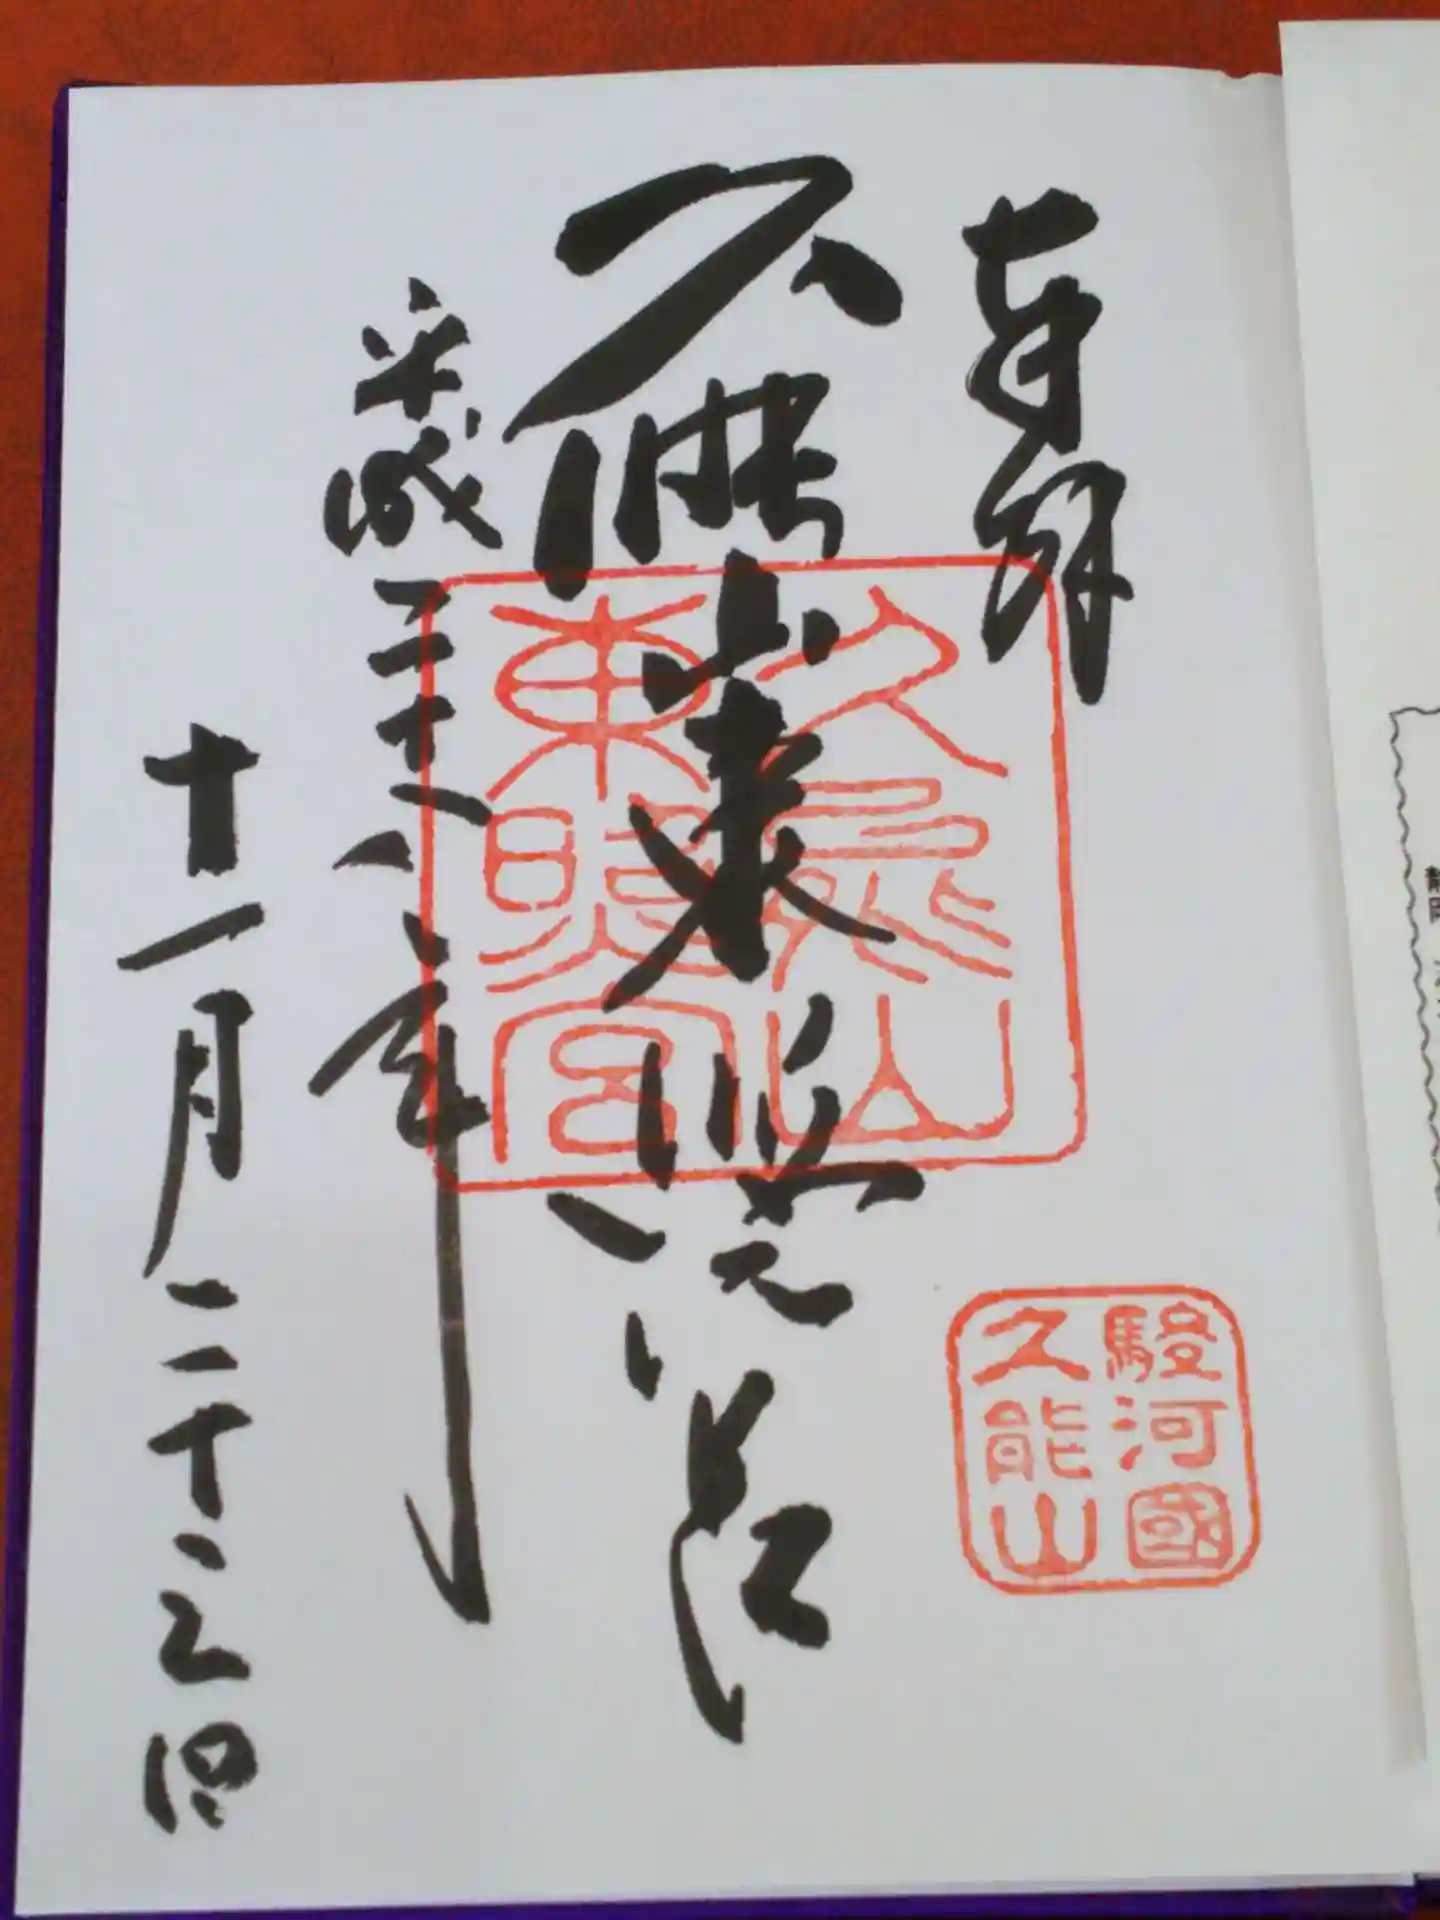 奉拝
久能山東照宮
平成二十六年
十一月二十三日
久能山
東照宮
駿河國
久能山
静岡